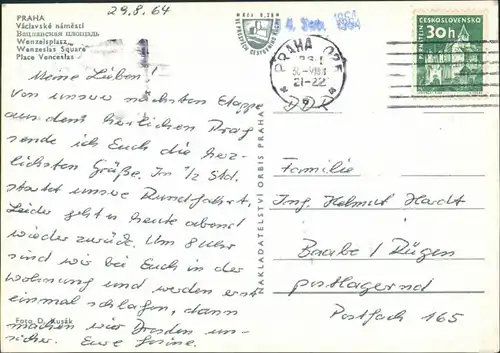 29.8.64
PRAHA
Václavské náměstí
Вацлавская площадь
Wenzelsplatz
Wenzeslas Square
Place Venceslas
Meine Lieben!
Von unserer nächsten Etappe
aus dem herrlichen Prag
sende ich Euch die herz-
lichsten Grüße. In 1/2 Std.
startet unsere Rundfahrt,
Leider gehts heute abend
wieder zurück. Um 8 Uhr
sind wir bei Euch in der
Wohnung und werden erst
einmal schlafen, dann
machen wir Dresden un-
sicher. Eure
Foto D. Rusák
NAKLADATELSTVÍ ORBIS PRAHA
4. Sep. 1964
PRAHA
21-22
ČESKOSLOVENSKO
30h
Familie
Ing. Helmut
Baabe / Rügen
postlagernd
Postfach 165